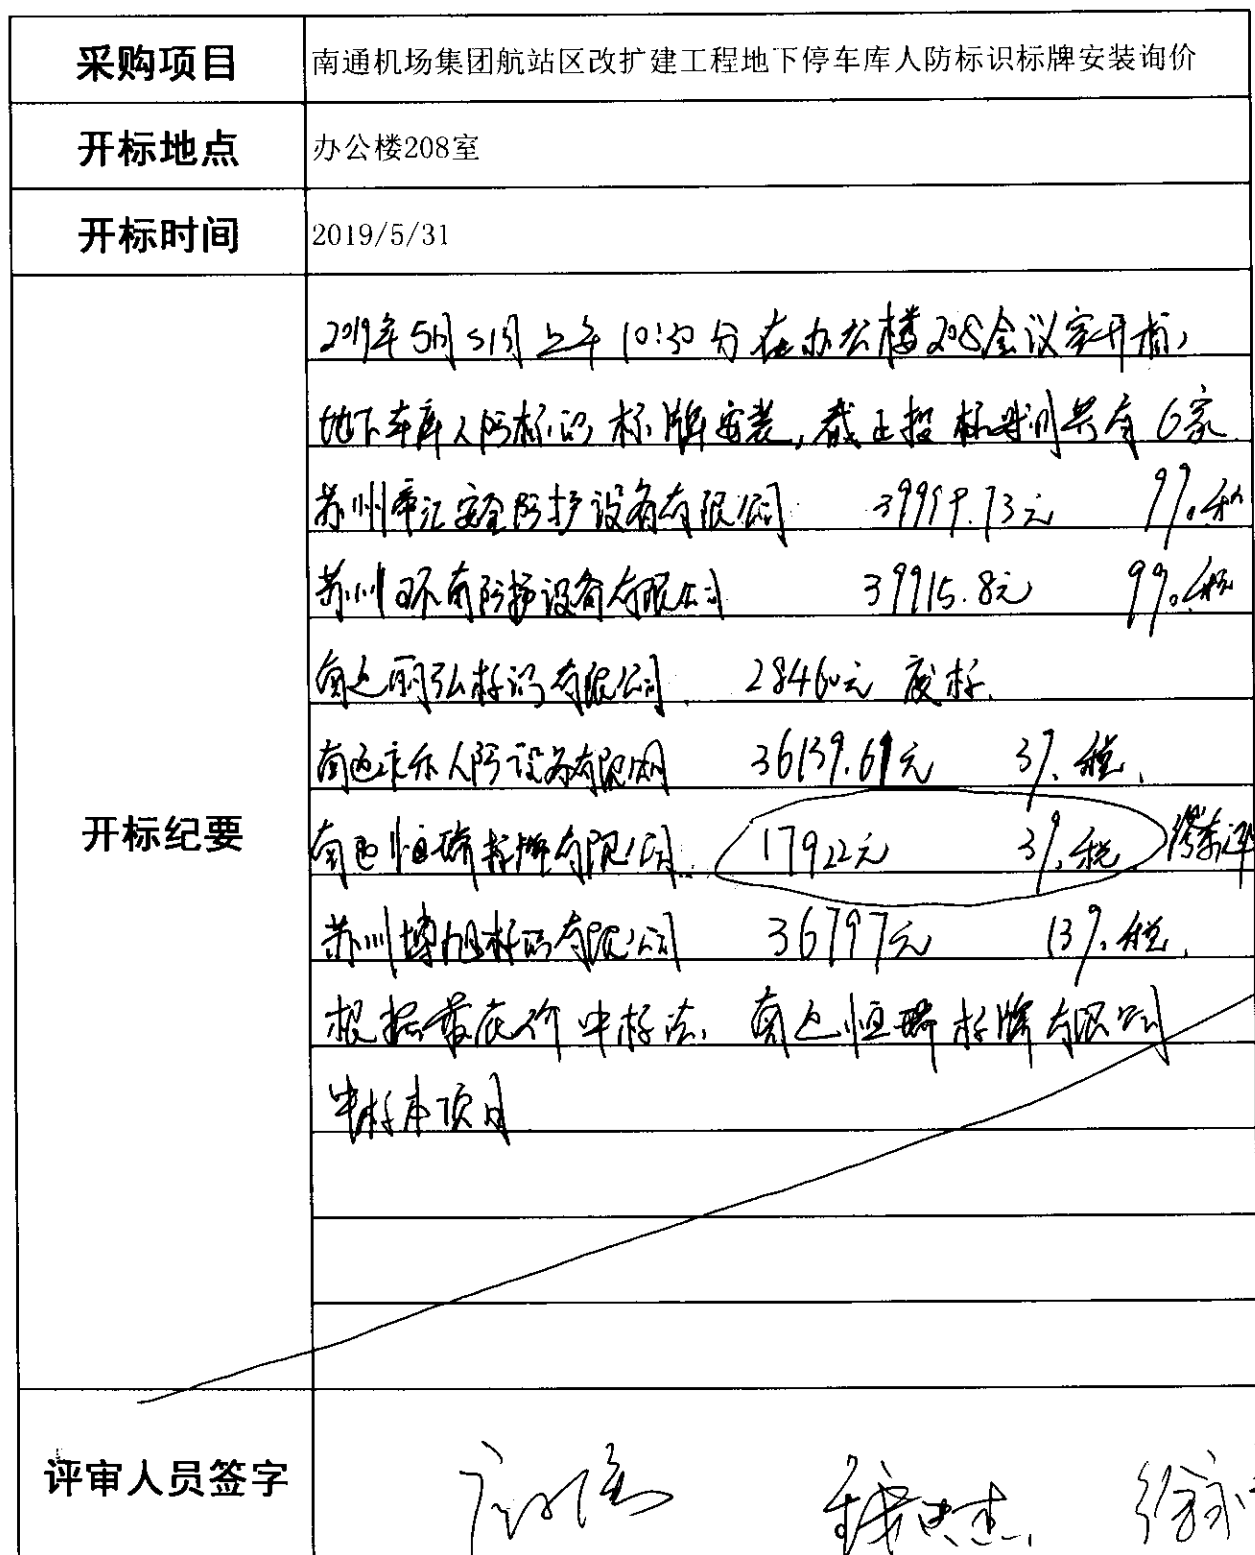 采购项目 南通机场集团航站区改扩建工程地下停车库人防标识标牌安装询价
开标地点 办公楼208室
开标时间 2019/5/31
开标纪要
2019年5月31日上午10:30分在办公楼208会议室开标,
地下车库人防标识标牌安装,截止投标时间共有6家
苏州 安全防护设备有限公司 9%税
苏州环南防护设备有限公司 39915.8元 9%税
南通丽弘标识有限公司 28460元 废标.
南通 人防设备有限公司 36139.61元 3%税.
南通恒瑞标牌有限公司 17922元 3%税
苏州博旭标识有限公司 36797元 13%税.
根据最底价中标法, 南通恒瑞标牌有限公司
中标本项目
评审人员签字